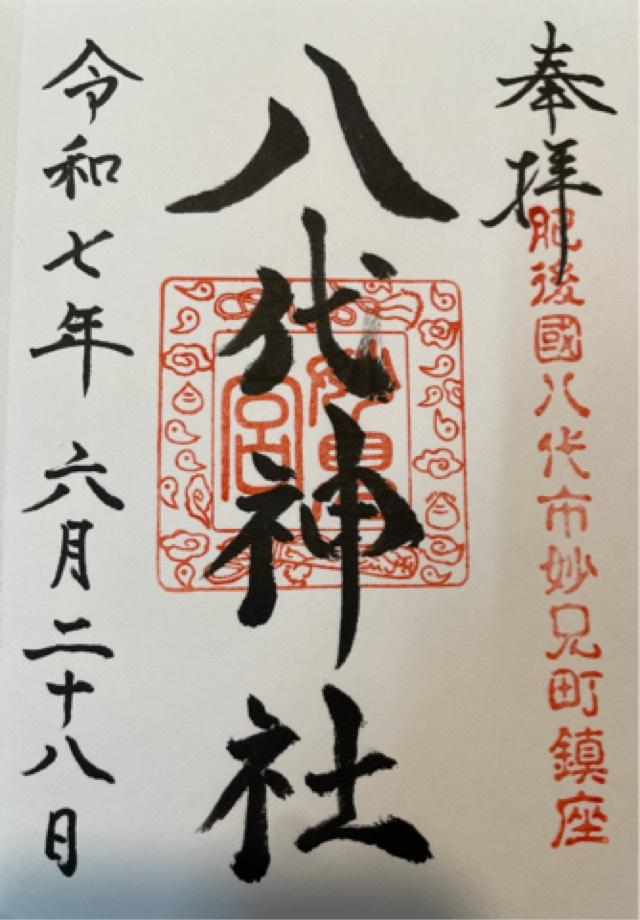 奉拝
肥後國八代市妙見町鎮座
八代神社
妙見宮
令和七年 六月二十八日